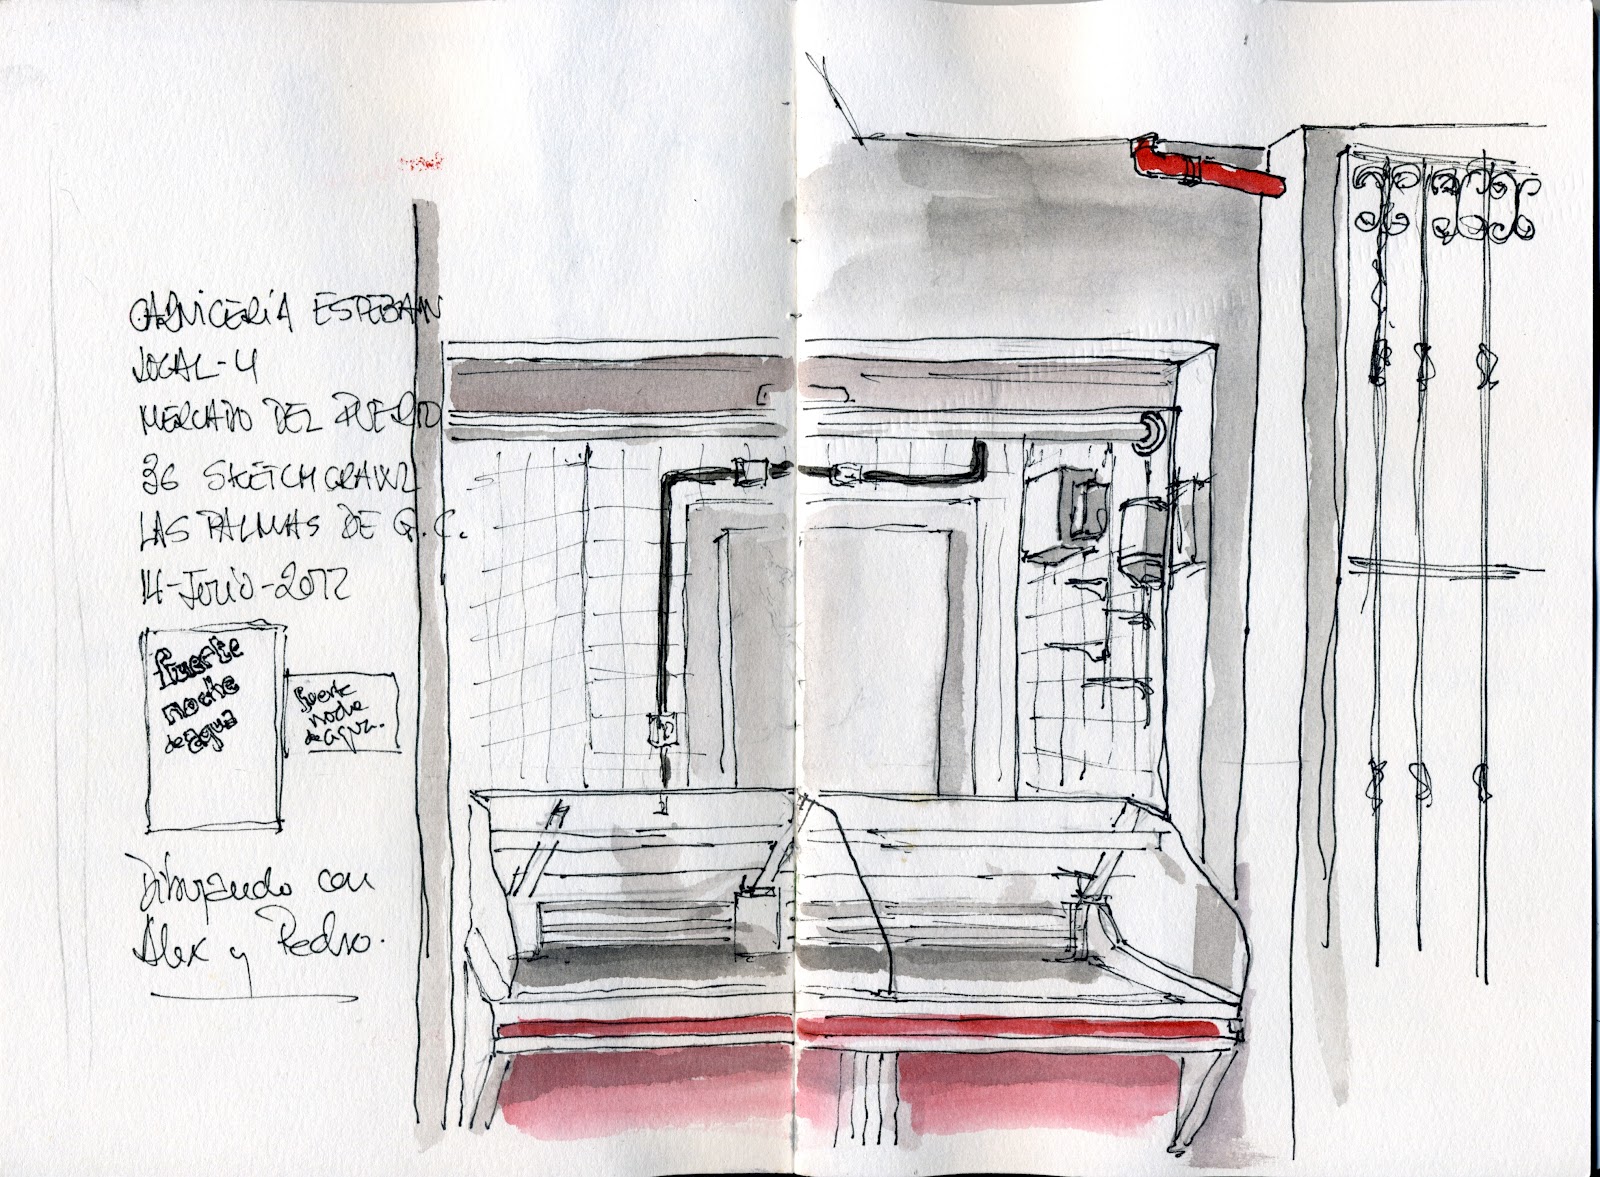 CARNICERÍA ESTEBAN
LOCAL-4
MERCADO DEL PUERTO
36 SKETCHCRAWL
LAS PALMAS DE G.C.
14-Julio-2012
fuerte
noche
de agua
fuerte
noche
de agua.
Dibujando con
Alex y Pedro.